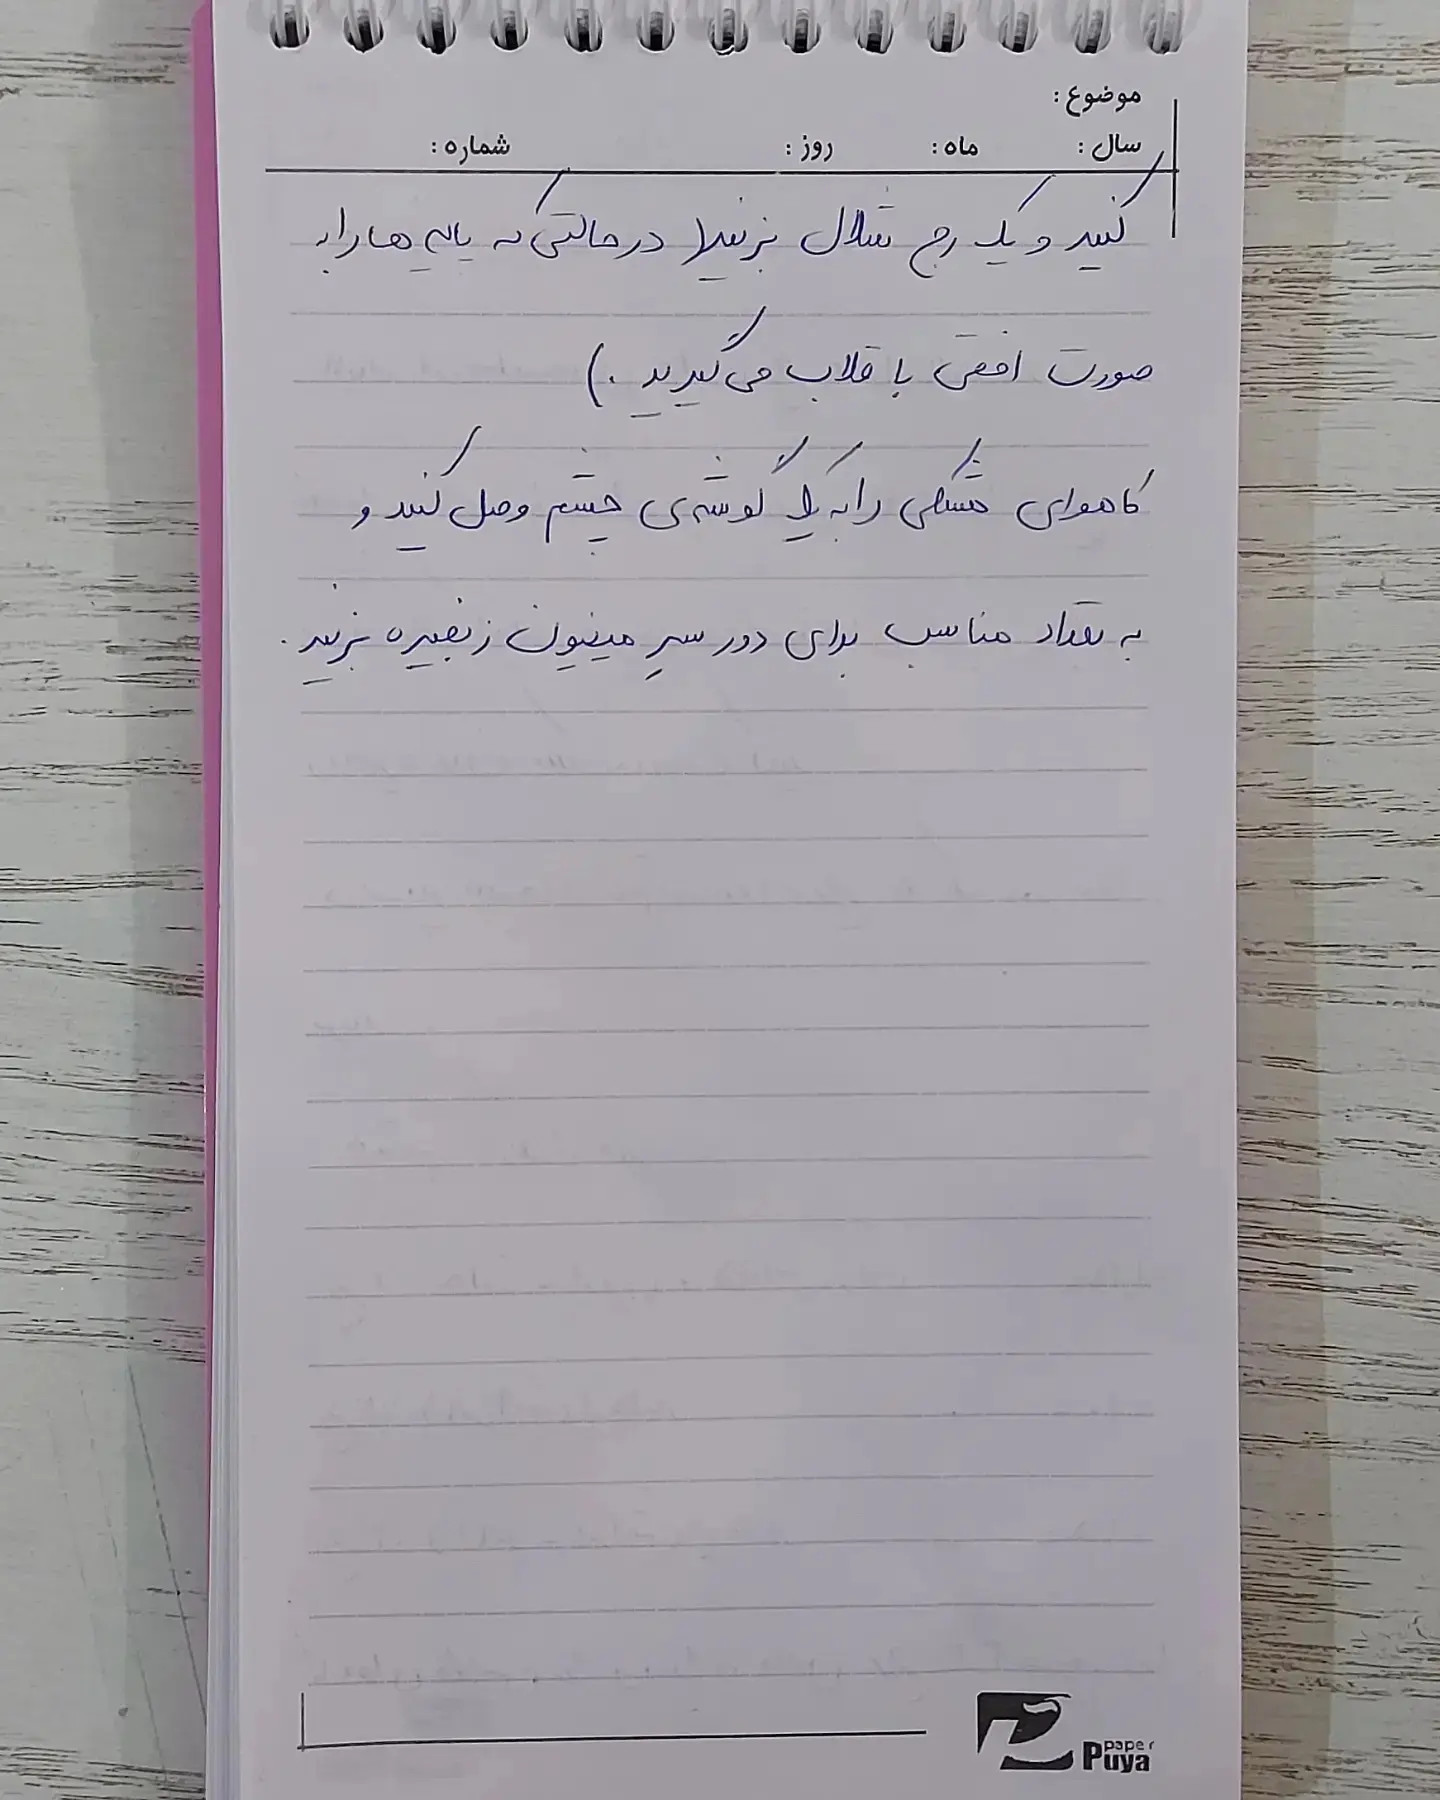 موضوع :
سال : ماه : روز : شماره :
کنید و یک رج شلال بزنید( در حالتی که پایه ها را به
صورت افقی با قلاب می گیرید .)
کاموای مشکی را به یک گوشه ی چشم وصل کنید و
به تعداد مناسب برای دور سر مینیون زنجیره بزنید .
paper
Puya